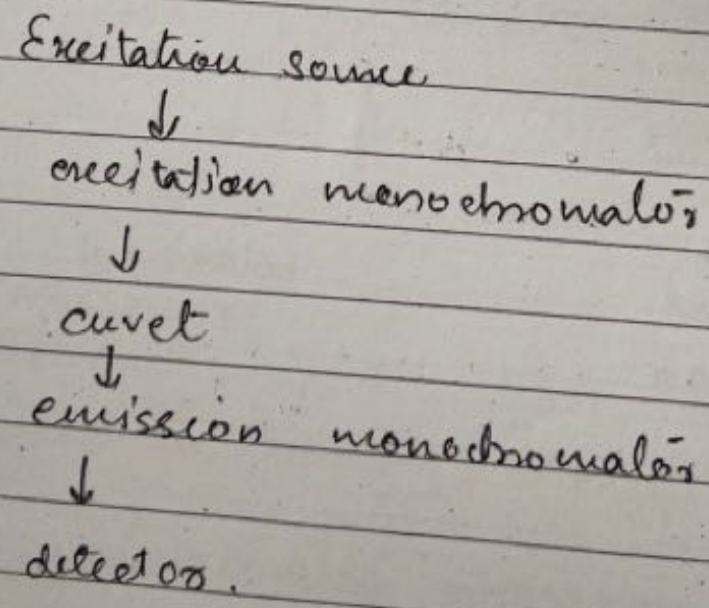 Excitation source
↓
excitation monochromator
↓
cuvet
↓
emission monochromator
↓
detector.